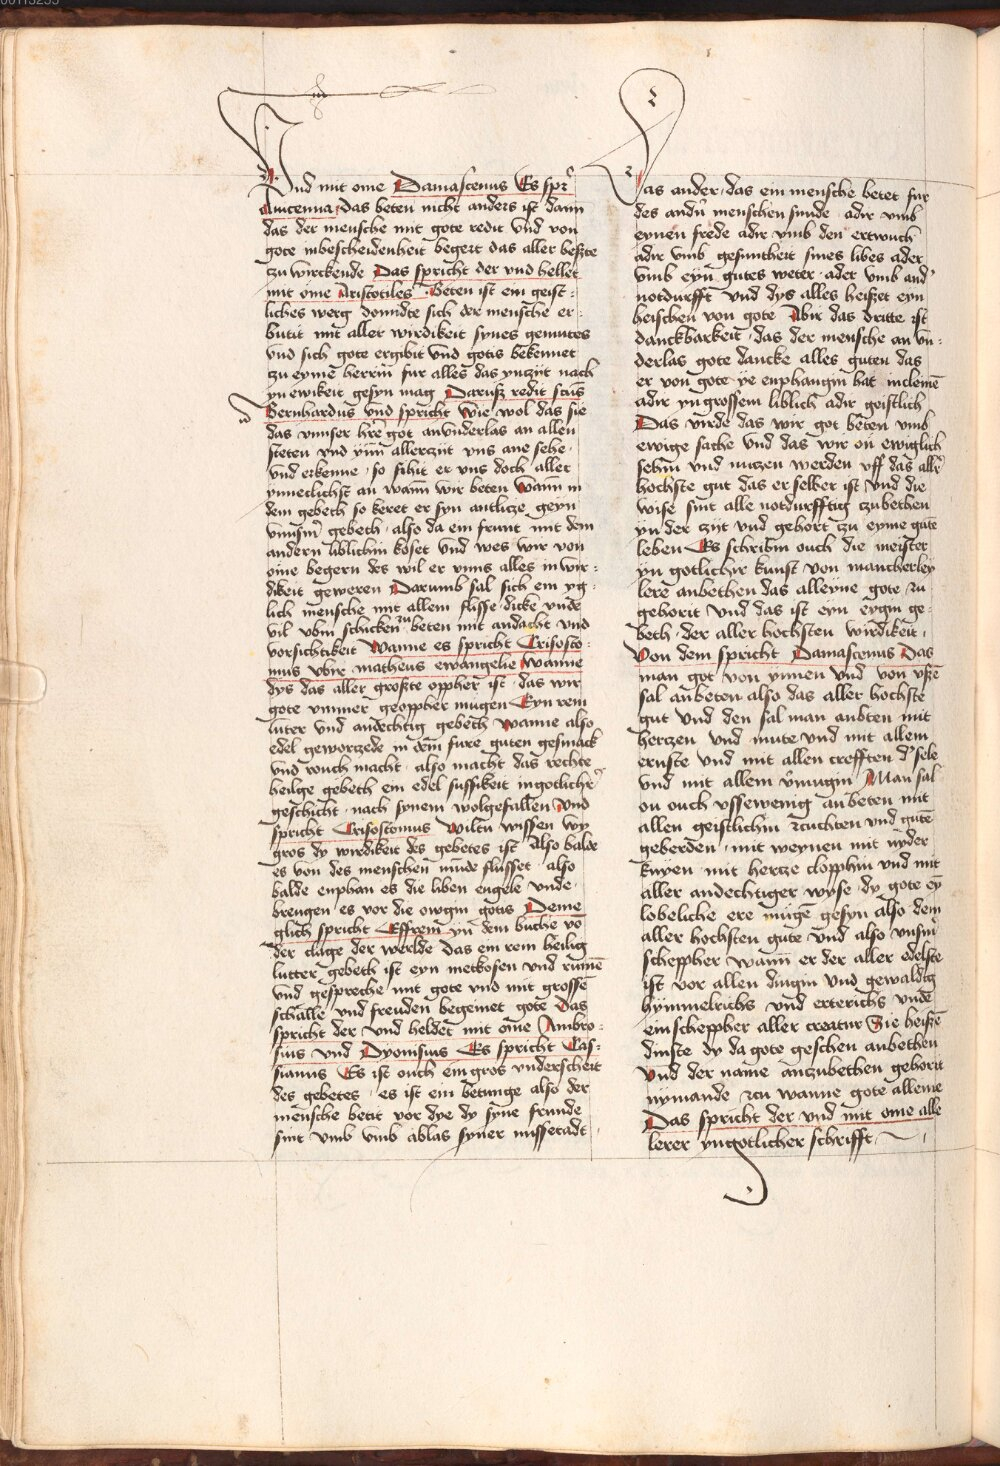 Vnd mit ome Damascenus Es spr̄
Auicenna das beten nicht anders ist dann
das der mensche mit gote redit vnd von
gote inbescheidenheit begert das aller beßte
zu wirckende Das spricht der vnd hellet
mit ome Aristotiles Beten ist ein geist-
liches werg domidte sich der mensche er-
butit mit aller wirdikeit synes gemutes
vnd sich gote ergibit vnd gotis bekennet
zu eyme herrin fur alles das ynzijt nach
yn ewikeit gesyn mag Darusz redit sctus
Bernhardus vnd spricht Wie wol das sie
das vnnser hr̄e got anvnderlas an allen
steten vnd yn allerzijt vns ane sehe
vnd erkenne so sihit er vns doch aller
ynneclichst an wann wir beten Wann in
dem gebeth so keret er syn antlicze geyn
vnnsm̄ gebeth also da ein frunt mit dem
andern liblichin koset vnd wes wir von
ome begern des wil er vnns alles inwir-
dikeit geweren Darumb sal sich ein yg-
lich mensche mit allem flisse dicke vnde
vil vbin schicken zu beten mit andacht vnd
vorsichtikeit Wanne es spricht Crisosto-
mus vbir matheus ewangelie Wanne
dys das aller großte oppher ist das wir
gote ymmer geoppher mugen Eyn rein
luter vnd andechtig gebeth Wanne also
edel geworczede in dem fure guten gesmack
vnd rouch macht also macht das rechte
heilge gebeth ein edel sussikeit ingotlicher
geschicht nach synem wolgefallen Vnd
spricht Crisostomus Wiltu wissen wy
gros dy wirdikeit des gebetes ist Also balde
es von des menschen munde flusset also
balde enphan es die liben engele vnde
brengen es vor die owgin gotis Deme
glich spricht Effrem yn dem buche vō
der clage der werlde das ein rein heilig
lutter gebeth ist eyn metkosen vnd rumē
vnd gespreche mit gote vnd mit grossē
schalle vnd freuden begeinet gote Das
spricht der vnd heldet mit ome Ambro-
sius vnd Dyonisius Es spricht Cas-
sianus Es ist ouch ein gros vnderscheit
des gebetes es ist ein betunge also der
mensche betit vor dye dy syne frunde
sint vmb vmb ablas syner missetadt
Das ander das ein mensche betet fur
des andn̄ menschen sunde adir vmb
eynen frede adir vmb den ertwuch
adir vmb gesuntheit sines libes ader
vmb eyn gutes weter ader vmb and'
notdurfft vnd dys alles heißet eyn
heischen von gote Abir das dritte ist
danckbarkeit das der mensche an vn-
derlas gote dancke alles guten das
er von gote ye enphangin hat incleinē
adir yn grossem liblich adir geistlich
Das virde das wir got beten vmb
ewige sache vnd das wir on ewiglich
sehin vnd nuczen werden vff das allr̄
hochste gut das er selber ist vnd die
wise sint alle notdurfftig czubethen
yn der zijt vnd gehort zu eyme gute
leben Es schribin ouch die meister
yn gotlichir kunst von mancherley
lere anbethen das alleyne gote zu
geborit vnd das ist eyn eygin ge-
beth der aller hochsten wirdikeit
Von dem spricht Damascenus Das
man got von ynnen vnd von vßē
sal anbeten also das aller hochste
gut vnd den sal man anbten mit
herczen vnd mute vnd mit allem
ernste vnd mit allen crefften d' sele
vnd mit allem v̄mugin Man sal
on ouch vssewenig anbeten mit
allen geistlichin zcuchten vnd gutē
geberden mit weynen mit nyder
knyen mit hercze clopphin vnd mit
aller andechtiger wyse dy gote ey̅
lobeliche ere mugē gesyn also dem
aller hochsten gute vnd also vnsm̄
scheppher wann er der aller edelste
ist vor allen dingin vnd gewaldig
hymmelrichs vnd erterichs vnde
ein scheppher aller creatur Sie heißē
dinste dy da gote geschen anbethen
Vnd der name anzubethen geborit
nymande zcu wanne gote alleine
Das spricht der vnd mit ome alle
lerer yngotlicher schrifft